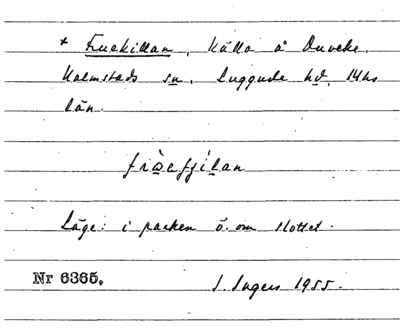 * Fruekillan, källa å Duveke,
Halmstads sn, Luggude hd, Mhs
län.
frùəafjílan
Läge: i parken ö. om slottet.
Nr 6365. I. Ingers 1955.